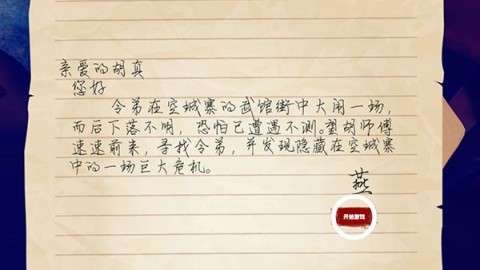 亲爱的胡真
您好
令弟在空城寨的武馆街中大闹一场,
而后下落不明,恐怕已遭遇不测。望胡师傅
速速前来,寻找令弟,并发现隐藏在空城寨
中的一场巨大危机。
燕
开始游戏